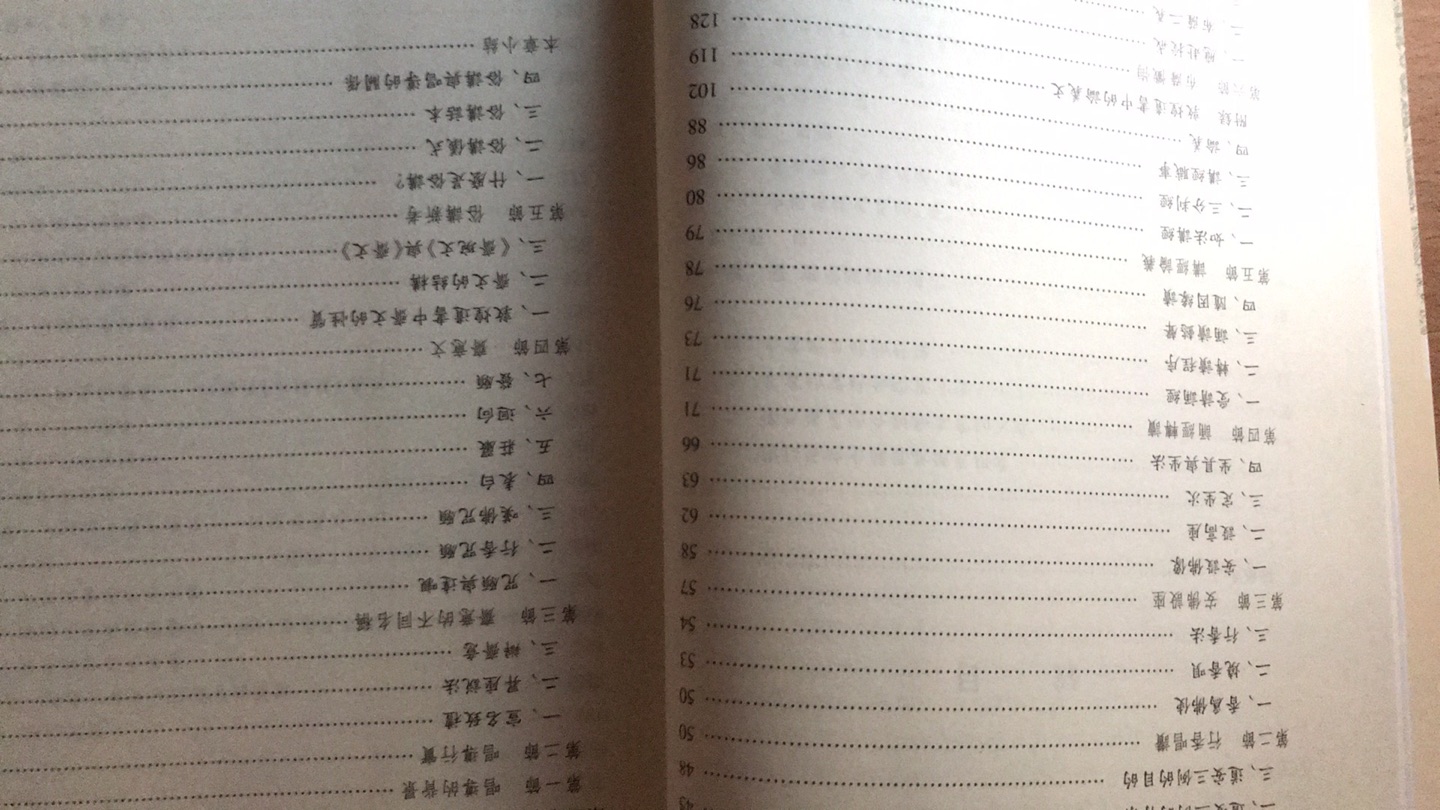 三、道安三例的目的 48
第二節 行香唱讚 50
一、香爲佛使 50
二、燒香唄 53
三、行香法 54
第三節 安佛設座 57
一、安設佛像 58
二、設高座 62
三、定坐次 63
四、坐具與坐法 66
第四節 誦經轉讀 71
一、受請誦經 71
二、轉讀程序 73
三、誦讀音聲 76
四、隨因緣讀 78
第五節 講經論義 79
一、如法講經 80
二、三分判經 86
三、講經職事 88
四、論義 102
附錄 敦煌遺書中的論義文 119
第六節 布薩 128
第一節 唱導的背景
第二節 唱導行實
一、宣名致禮
二、昇座説法
三、辯齋意
第三節 齋意的不同名稱
一、咒願與達嚫
二、行香咒願
三、嘆佛咒願
四、表白
五、莊嚴
六、迴向
七、發願
第四節 齋意文
一、敦煌遺書中齋文的性質
二、齋文的結構
三、《齋琬文》與《齋文》
第五節 俗講新考
一、什麼是俗講?
二、俗講儀式
三、俗講話本
四、俗講與唱導的關係
本章小結